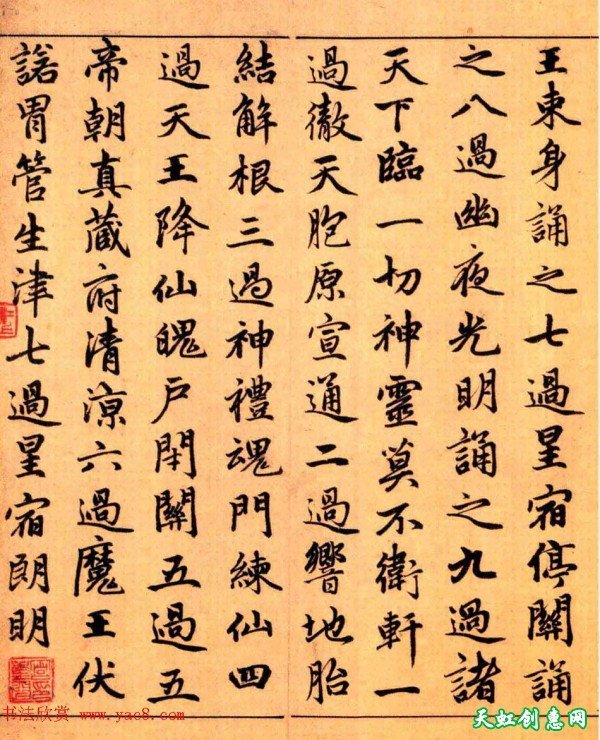 王束身誦之七過星宿停關誦
之八過幽夜光明誦之九過諸
天下臨一切神靈莫不衛軒一
過徹天胞原宣通二過響地胎
結解根三過神禮魂門練仙四
過天王降仙魄戶閇關五過五
帝朝真藏府清涼六過魔王伏
諾胃管生津七過星宿朗明
书法欣赏 www.yac8.com
天虹创惠网